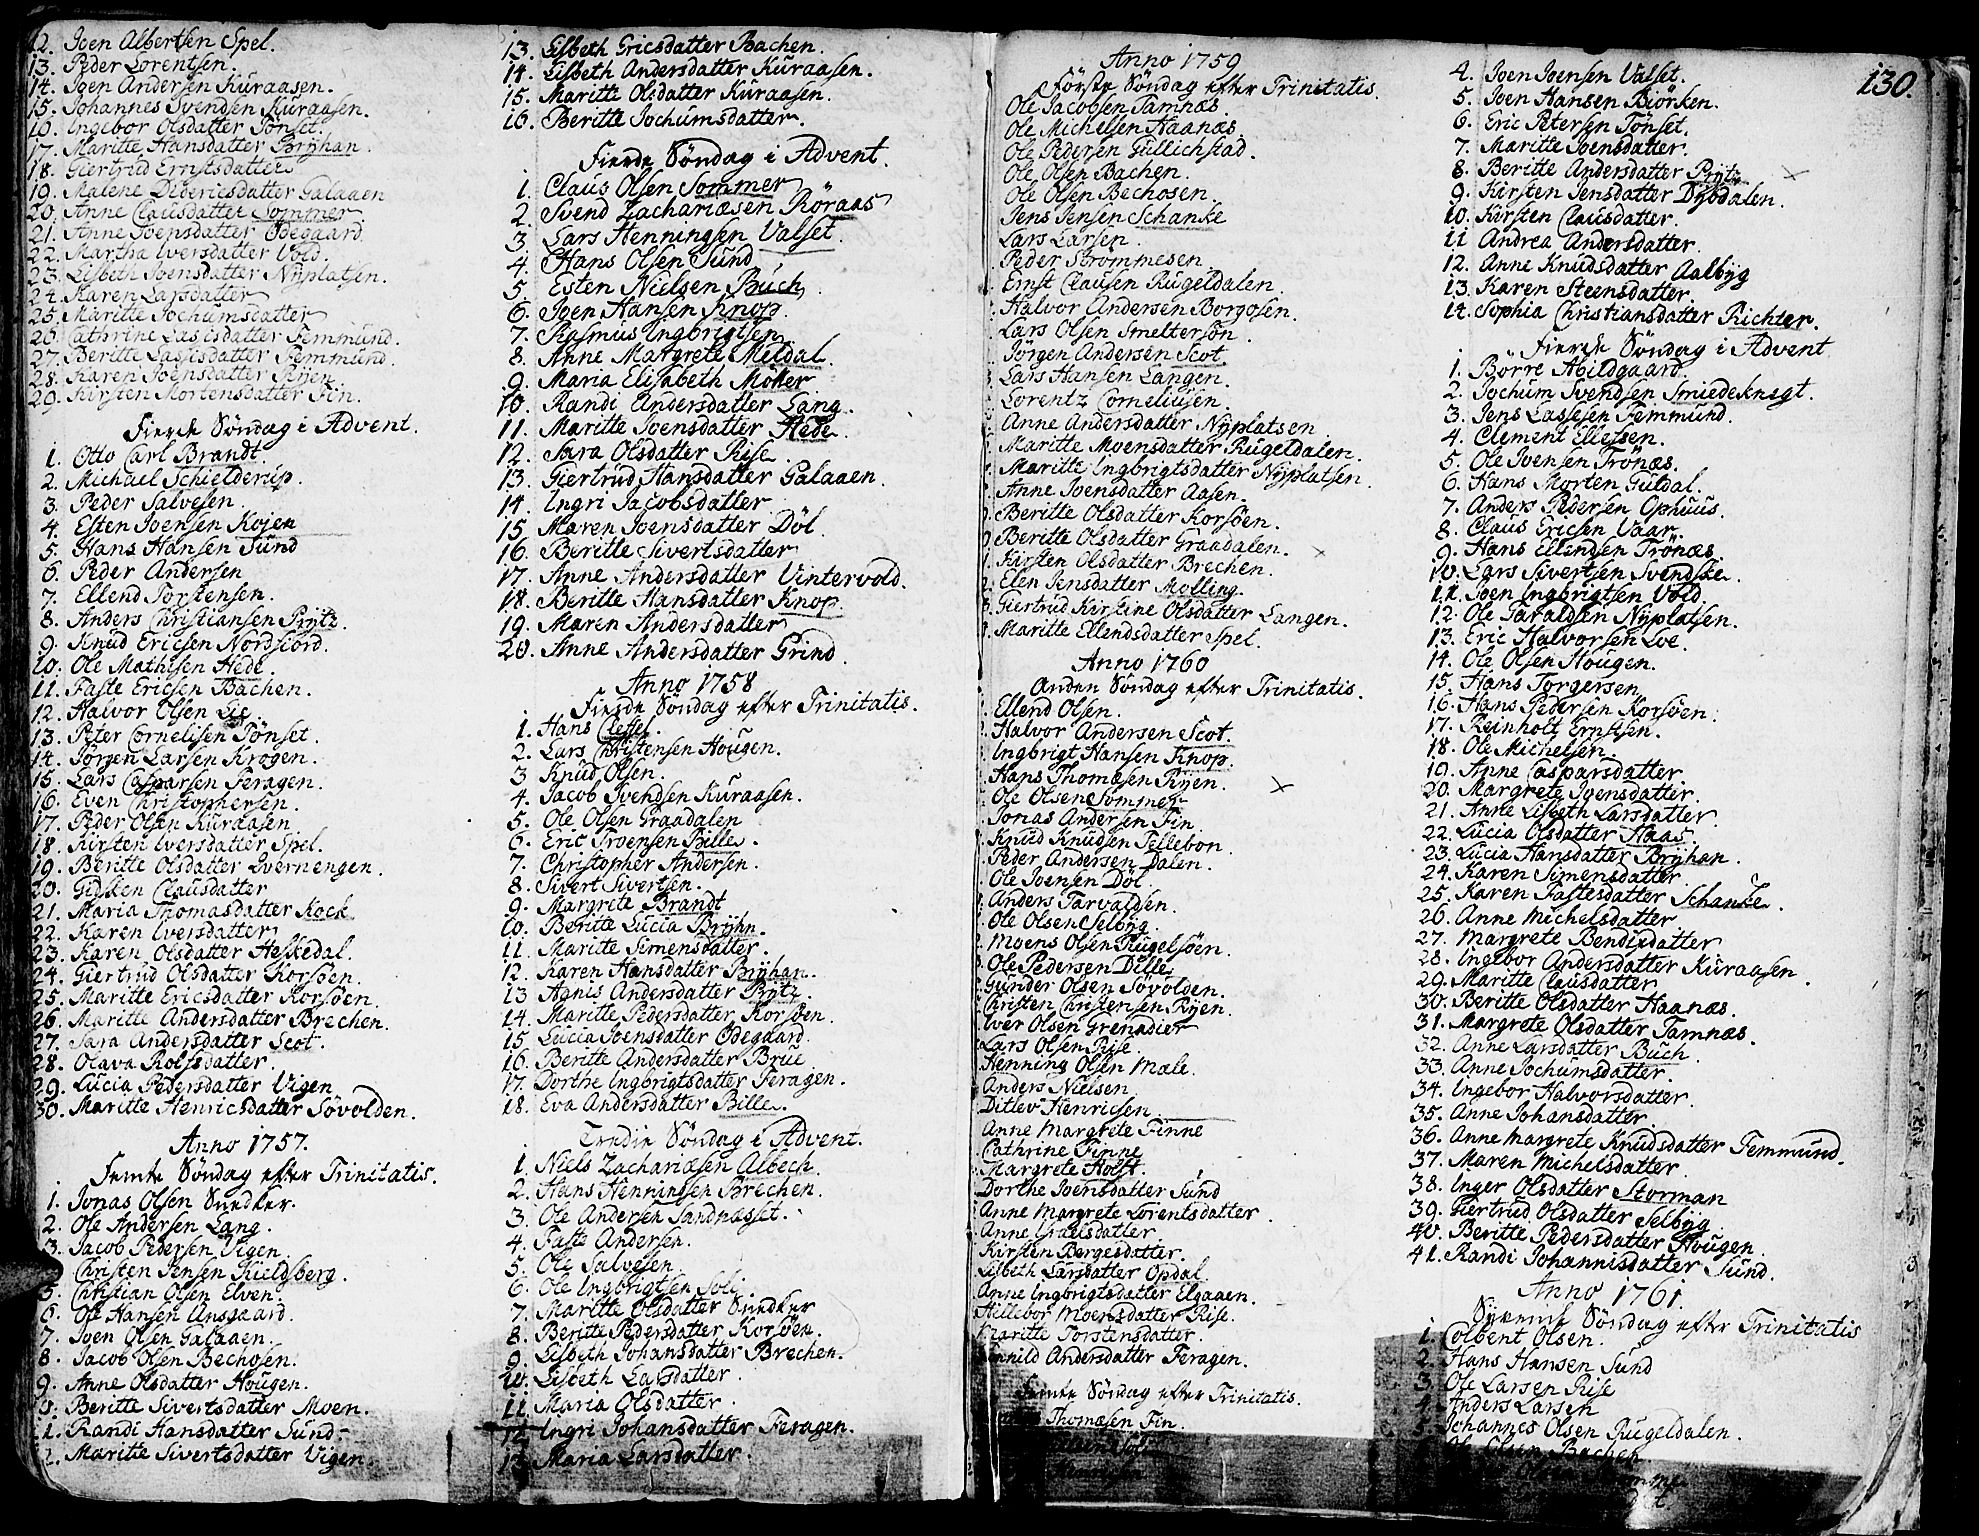 12. Joen Albertsen Spel.
13. Peder Lorentsen.
14. Joen Andersen Kuraasen.
15. Johannes Svendsen Kuraasen.
16. Ingebor Olsdatter Tönset.
17. Maritte Hansdatter Brÿhan.
18. Giertrud Ernstsdatter
19. Malene Didericsdatter Galaaen
20. Anne Clausdatter Sommer
21. Anne Joensdatter Ödegaard
22. Martha Iversdatter Vold.
23. Lisbeth Joensdatter Nÿplatsen.
24. Karen Larsdatter
25. Maritte Jochumsdatter
26. Cathrine Lassisdatter Femmund.
27. Beritte Lassisdatter Femmund.
28. Karen Joensdatter Rÿen.
29. Kirsten Mortensdatter Fin.
Fierde Söndag i Advent.
1. Otto Carl Brandt
2. Michael Schielderup.
3. Peder Salvesen
4. Esten Joensen Kojen
5. Hans Hansen Sund
6. Peder Andersen
7. Ellend Torstensen.
8. Anders Christiansen Prÿtz.
9. Knud Ericsen Nordfiord.
10. Ole Mathisen Hede
11. Faste Ericsen Bachen.
12. Halvor Olsen Lie
13. Peter Cornelisen Tönset.
14. Jörgen Larsen Krogen.
15. Lars Casparsen Feragen.
16. Even Christophersen.
17. Peder Olsen Kuraasen
18. Kirsten Iversdatter Spel.
19. Beritte Olsdatter Ivernengen.
20. Gidsken Clausdatter
21. Maria Thomasdatter Kock
22. Karen Iversdatter
23. Karen Olsdatter Heskedal.
24. Giertrud Olsdatter Korsöen.
25. Maritte Ericsdatter Korsöen.
26. Maritte Andersdatter Brechen.
27. Sara Andersdatter Scot.
28. Olava Rolfsdatter.
29. Lucia Pedersdatter Vigen
30. Maritte Henricsdatter Sövolden.
Anno 1757.
Femte Söndag efter Trinitatis.
1. Jonas Olsen Snedker.
2. Ole Andersen Lang.
3. Jacob Pedersen Vigen
Christen Jensen Kieldsberg.
5. Christian Olsen Elven.
6. Ole Hansen Aasgaard.
7. Joen Olsen Galaaen.
8. Jacob Olsen Bechosen.
9. Anne Olsdatter Hougen.
Beritte Sivertsdatter Moen.
Randi Hansdatter Sund
Maritte Sivertsdatter Vigen.
13. Lisbeth Ericsdatter Bachen.
14. Lisbeth Andersdatter Kuraasen.
15. Maritte Olsdatter Kuraasen.
16. Beritte Jochumsdatter.
Fierde Söndag i Advent.
1. Claus Olsen Sommer
2. Svend Zachariæsen Röraas
3. Lars Henningsen Valset.
4. Hans Olsen Sund
5. Esten Nielsen Buch
6. Joen Hansen Knop.
7. Rasmus Ingbrigtsen
8. Anne Margrete Meldal
9. Maria Elisabeth Möller
10. Randi Andersdatter Lang.
11. Maritte Joensdatter Hede.
12. Sara Olsdatter Rise
13. Giertrud Hansdatter Galaaen.
14. Ingri Jacobsdatter
15. Maren Joensdatter Döl
16. Beritte Sivertsdatter
17. Anne Andersdatter Vintervold.
18. Beritte Hansdatter Knop.
19. Maren Andersdatter
20. Anne Andersdatter Grind.
Anno 1758
Fierde Söndag efter Trinitatis.
1. Hans
2. Lars Christensen Hougen.
3 Knud Olsen.
4. Jacob Svendsen Kuraasen.
5. Ole Olsen Graadalen
6. Eric Troensen Bille.
7. Christopher Andersen.
8. Sivert Sivertsen.
9. Margrete Brandt
10. Beritte Lucia Brÿhn.
11. Maritte Simensdatter
12. Karen Hansdatter Brÿhan.
13 Agnis Andersdatter Prÿtz
14. Maritte Pedersdatter Korsöen.
15. Lucia Joensdatter Ödegaard.
16. Beritte Andersdatter Brue
17. Dorthe Ingbrigtsdatter Feragen.
18. Eva Andersdatter Bille.
Tredie Söndag i Advent.
1. Niels Zachariæsen Albech.
2. Hans Henningsen Brechen.
3. Ole Andersen Sandnæsset.
4. Faste Andersen.
5. Ole Salvesen
6. Ole Ingbrigtsen Soli
7. Maritte Olsdatter Snedker
8. Beritte Pedersdatter Korsöen.
9. Lisbeth Johansdatter Brechen.
10. Lisbeth Larsdatter.
11. Maria Olsdatter
12. Ingri Johansdatter Feragen.
13. Maria Larsdatter.
Anno 1759
Förste Söndag efter Trinitatis.
Ole Jacobsen Tamnæs
Ole Michelsen Haanæs
Ole Pedersen Gullichstad.
Ole Olsen Bachen.
Ole Olsen Bechosen.
Jens Jensen Schanke
Lars Larsen.
Peder Strommesen
Ernst Clausen Rugeldalen.
Halvor Andersen Borgosen.
Lars Olsen Smeltersön.
Jörgen Andersen Scot
Lars Hansen Langen.
Lorentz Corneliusen.
Anne Andersdatter Nÿplatsen
Maritte Moensdatter Rugeldalen.
Maritte Ingbrigtsdatter Nÿplatsen.
Anne Joensdatter Aasen.
Beritte Olsdatter Korsöen.
Beritte Olsdatter Graadalen.
Kirsten Olsdatter Brechen.
Elen Jensdatter Molling.
Giertrud Kirstine Olsdatter Langen.
Maritte Ellendsdatter Spel.
Anno 1760
Anden Söndag efter Trinitatis.
Ellend Olsen.
Halvor Andersen Scot.
Ingbrigt Hansen Knop.
Hans Thomæsen Rÿen.
Ole Olsen Sommer
Jonas Andersen Fin
Knud Knudsen Tellebon.
Peder Andersen Dalen.
Ole Joensen Döl
Anders Tarvaldsen.
Ole Olsen Selbÿg.
Moens Olsen Rugelsöen.
Ole Pedersen Dille
Gunder Olsen Sövolden.
Christen Christensen Rÿen.
Iver Olsen Grenadier
Lars Olsen Rise
Henning Olsen Mæle.
Anders Nielsen
Ditlev Henricsen.
Anne Margrete Finne
Cathrine Finne
Margrete Holst.
Dorthe Joensdatter Sund
Anne Margrete Lorentsdatter.
Anne Graelsdatter.
Kirsten Børgesdatter
Lisbeth Larsdatter Opdal.
Anne Ingbrigtsdatter Elgaaen.
Hillebor Moensdatter Rise.
Maritte Torstensdatter.
Gunnild Andersdatter Feragen.
Femte Söndag efter Trinitatis.
Thomæsen Fin.
130.
4. Joen Joensen Valset.
5. Joen Hansen Biörken.
6. Eric Petersen Tönset.
7. Maritte Joensdatter.
8. Beritte Andersdatter Prÿtz
9. Kirsten Jensdatter Dÿbdalen.
10. Kirsten Clausdatter.
11 Andrea Andersdatter.
12. Anne Knudsdatter Aalbÿg
13. Karen Steensdatter.
14. Sophia Christiansdatter Richter.
Fierde Söndag i Advent
1. Börre Abildgaard.
2. Jochum Svendsen Smiedeknegt.
3. Jens Lassesen Femmund.
4. Clement Ellefsen.
5. Ole Iversen Trönæs.
6. Hans Morten Guldal.
7. Anders Pedersen Ophuus.
8. Claus Ericsen Vaar.
9. Hans Ellendsen Trönæs.
10. Lars Sivertsen Svendske.
11. Joen Ingbrigtsen Vold.
12. Ole Taraldsen Nÿplatsen.
13. Eric Halvorsen Loe.
14. Ole Olsen Hougen.
15. Hans Torgersen
16. Hans Pedersen Korsöen.
17. Reinholt Ernstsen.
18. Ole Michelsen.
19. Anne Casparsdatter.
20. Margrete Joensdatter.
21. Anne Lisbeth Larsdatter.
22. Lucia Olsdatter Haas
23. Lucia Hansdatter Brÿhan.
24. Karen Simensdatter.
25. Karen Fastesdatter Schanke.
26. Anne Michelsdatter
27. Margrete Bendixdatter
28. Ingebor Andersdatter Kuraasen.
29. Maritte Clausdatter
30. Beritte Olsdatter Haanæs.
31. Margrete Olsdatter Tamnæs.
32. Anne Larsdatter Buch.
33. Anne Jochumsdatter.
34. Ingebor Halvorsdatter.
35. Anne Johansdatter.
36. Anne Margrete Knudsdatter Femmund.
37. Maren Michelsdatter
38. Inger Olsdatter Storman
39. Giertrud Olsdatter Selbÿg
40. Beritte Pedersdatter Hougen.
41. Randi Johannisdatter Sund.
Anno 1761.
Söndag efter Trinitatis
1. Colbent Olsen.
2. Hans Hansen Sund
3. Ole Larsen Rise
4. Anders Larsen
Johannes Olsen Rugeldalen.
Olsen Bachen